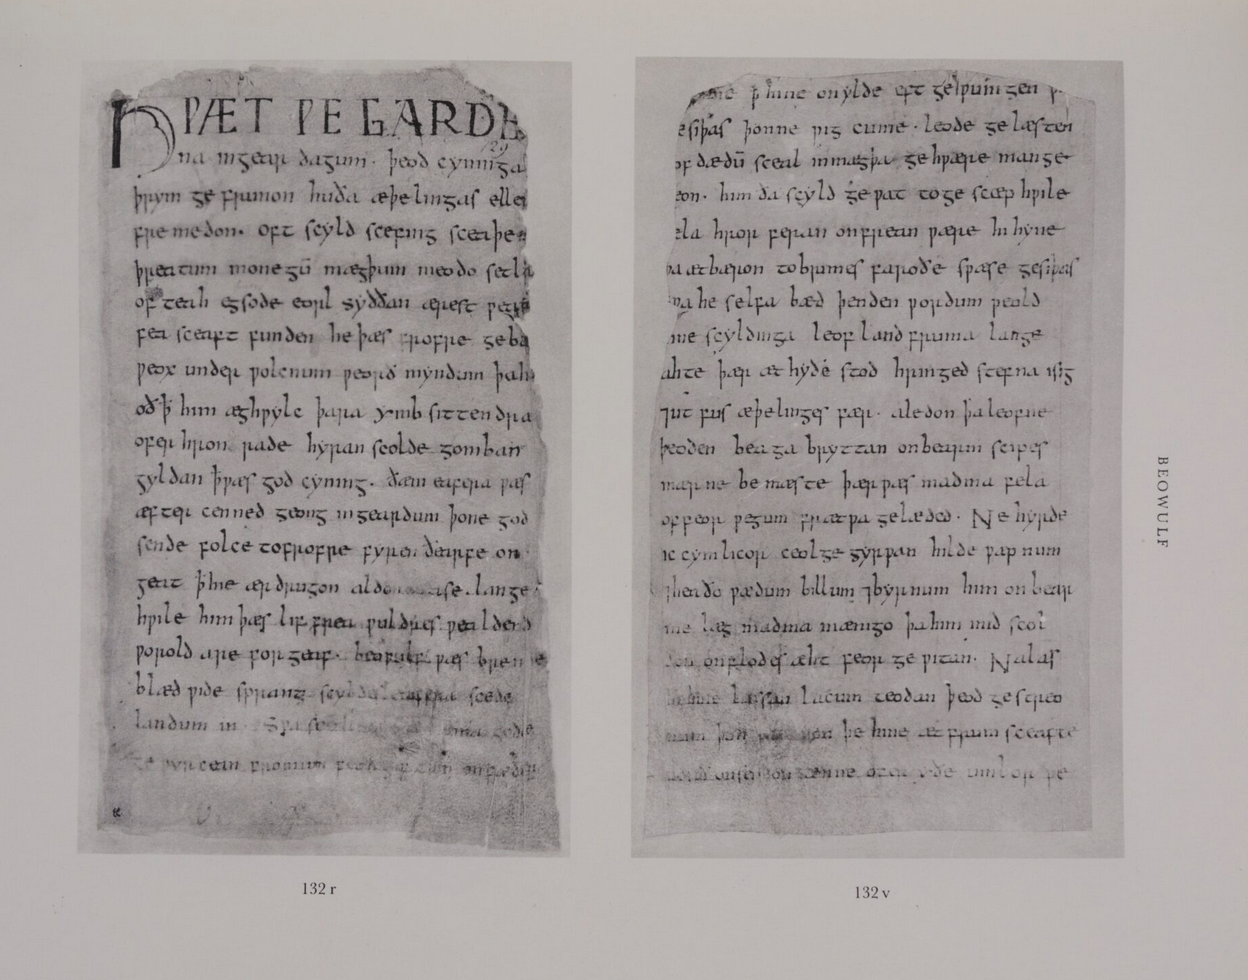 HǷÆT ǷE GARDE
na ingear dagum. þeod cyninga
þrym ge frunon huða æþelingas ellen
fremedon. oft scyld scefing sceaþe
þreatum monegū mægþum meodo setla
of teah egsode eorl syððan ærest ƿear
fea sceaft funden he þæs frofre geba
ƿeox under ƿolcnum ƿeorð myndum þah
oð ꝥ him æghƿylc þara ymb sittendra
ofer hron rade hyran scolde gomban
gyldan ꝥ ƿæs god cyning. ðæm eafera ƿæs
æfter cenned geong ingeardum þone god
sende folce tofrofre fyren ðearfe on
geat ꝥ hie ær drugon aldor ase. lange
hƿile him þæs lif frea ƿuldres ƿealdend
ƿorold are for geaf. beoƿulf ƿæs breme
blæd ƿide sprang scyldes eafera scede
landum in. Sƿa gode
ge ƿyrcean fromum feoh giftum onfæder
132 r
ꝥ hine onylde eft geƿunigen ƿ
esiþas þonne ƿig cume. leode gelæsten
of dædū sceal inmægþa gehƿære mange
eon. him ða scyld geƿat toge scæp hƿile
ela hror feran onfrean ƿære hi hyne
þa ætbæron tobrimes faroðe sƿæse gesiþas
sƿa he selfa bæd þenden ƿordum ƿeold
ine scyldinga leof landfruma lange
ahte þær æt hyðe stod hringed stefna isig
⁊ut fus æþelinges fær. aledon þa leofne
þeoden beaga bryttan onbearm scipes
mærne be mæste þær ƿæs madma fela
of feor ƿegum frætƿa gelæded. Ne hyrde
ic cymlicor ceol gegyrƿan hilde ƿæpnum
⁊heaðo ƿædum billum ⁊byrnum him on bear
me læg madma mænigo þa him mid scol
don onflodes æht feor geƿitan. Nalæs
hi hine læssan lacum teodan þeod gestreo
num þon þe hine æt frum sceafte
onsendon ænne ofer yðe umbor ƿe
132 v
BEOWULF